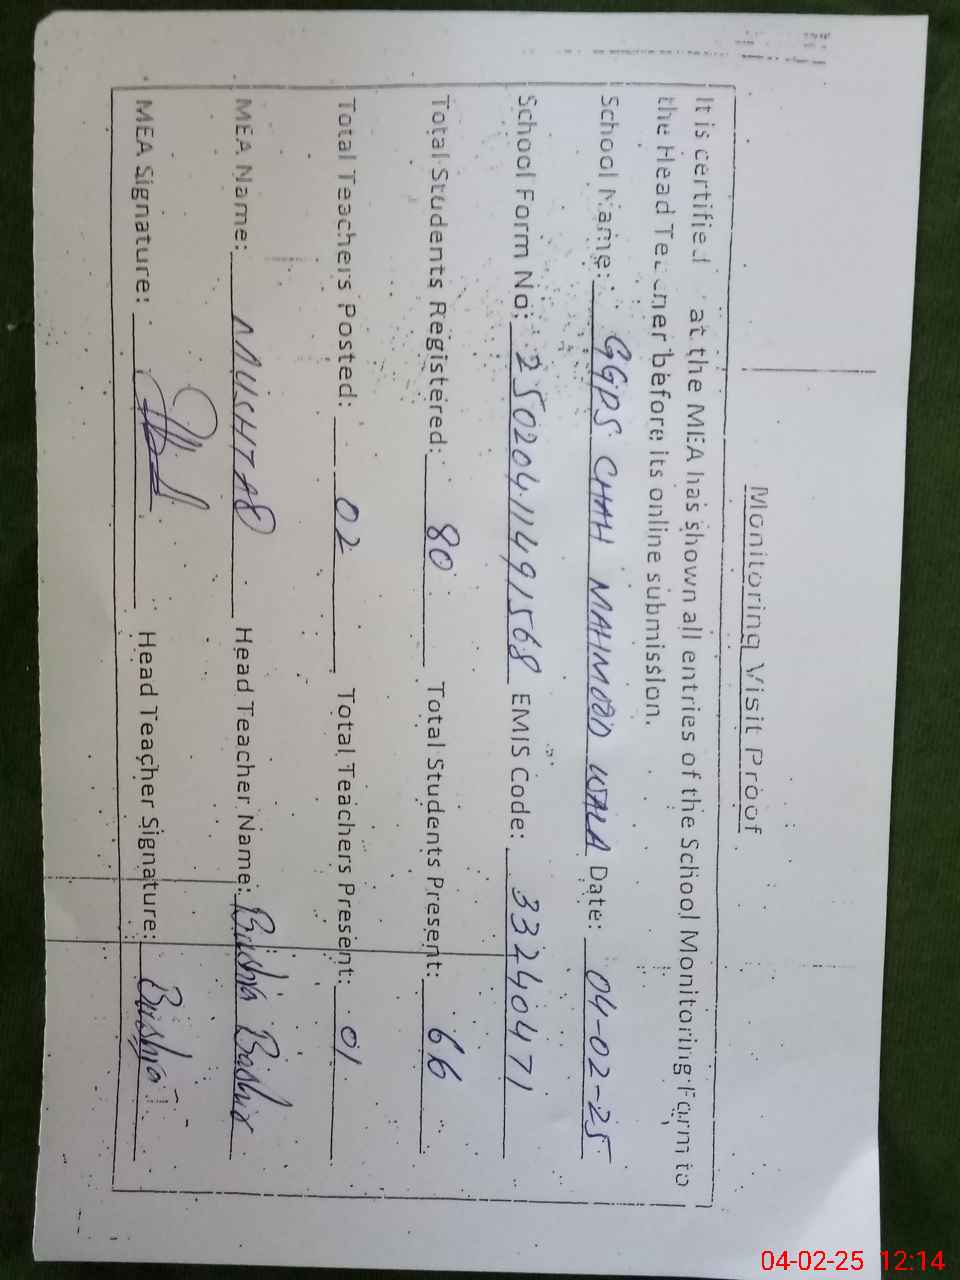 Monitoring Visit Proof
It is certified at the MEA has shown all entries of the School Monitoring Form to
the Head Teacher before its online submission.
School Name: GGPS CHAH MAHMOOD WALA Date: 04-02-25
School Form No: 2502041149 1568 EMIS Code: 33240471
Total Students Registered: 80 Total Students Present: 66
Total Teachers Posted: 02 Total Teachers Present: 01
MEA Name: MUSHTAQ Head Teacher Name: Bushra Bashir
MEA Signature: Head Teacher Signature: Bushra
04-02-25 12:14